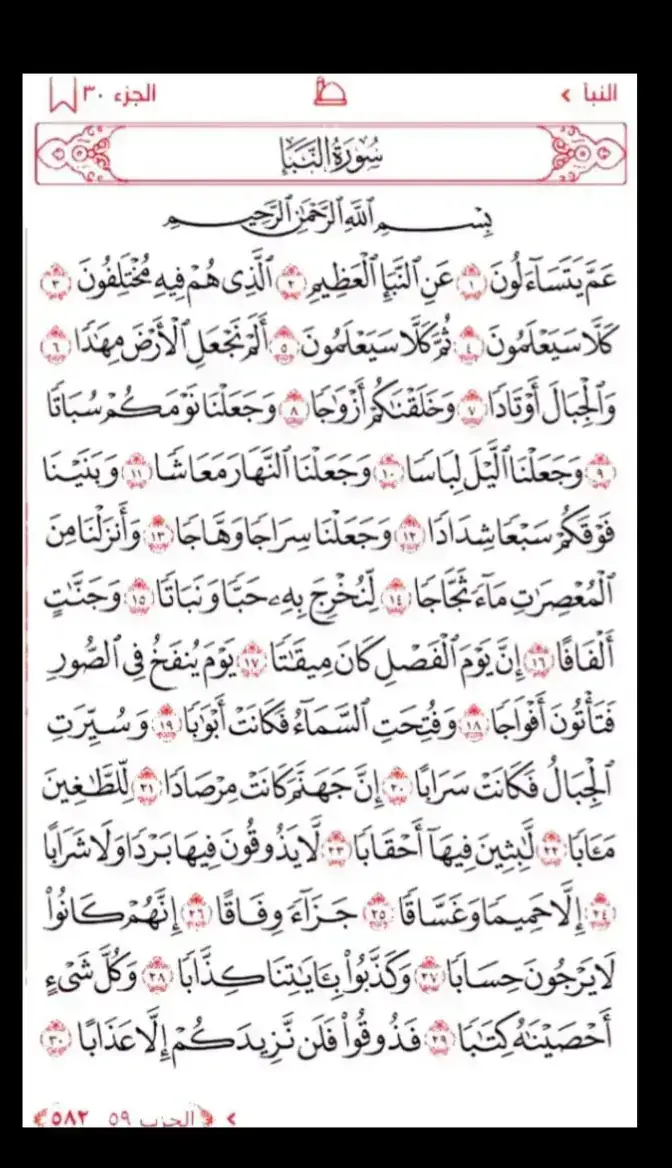 النبأ
الجزء ٣٠
سُورَةُ النَّبَإِ
بِسْمِ ٱللَّهِ ٱلرَّحْمَٰنِ ٱلرَّحِيمِ
عَمَّ يَتَسَآءَلُونَ ١ عَنِ ٱلنَّبَإِ ٱلْعَظِيمِ ٢ ٱلَّذِى هُمْ فِيهِ مُخْتَلِفُونَ ٣
كَلَّا سَيَعْلَمُونَ ٤ ثُمَّ كَلَّا سَيَعْلَمُونَ ٥ أَلَمْ نَجْعَلِ ٱلْأَرْضَ مِهَٰدًا ٦
وَٱلْجِبَالَ أَوْتَادًا ٧ وَخَلَقْنَٰكُمْ أَزْوَٰجًا ٨ وَجَعَلْنَا نَوْمَكُمْ سُبَاتًا
٩ وَجَعَلْنَا ٱلَّيْلَ لِبَاسًا ١٠ وَجَعَلْنَا ٱلنَّهَارَ مَعَاشًا ١١ وَبَنَيْنَا
فَوْقَكُمْ سَبْعًا شِدَادًا ١٢ وَجَعَلْنَا سِرَاجًا وَهَّاجًا ١٣ وَأَنزَلْنَا مِنَ
ٱلْمُعْصِرَٰتِ مَآءً ثَجَّاجًا ١٤ لِّنُخْرِجَ بِهِۦ حَبًّا وَنَبَاتًا ١٥ وَجَنَّٰتٍ
أَلْفَافًا ١٦ إِنَّ يَوْمَ ٱلْفَصْلِ كَانَ مِيقَٰتًا ١٧ يَوْمَ يُنفَخُ فِى ٱلصُّورِ
فَتَأْتُونَ أَفْوَاجًا ١٨ وَفُتِحَتِ ٱلسَّمَآءُ فَكَانَتْ أَبْوَٰبًا ١٩ وَسُيِّرَتِ
ٱلْجِبَالُ فَكَانَتْ سَرَابًا ٢٠ إِنَّ جَهَنَّمَ كَانَتْ مِرْصَادًا ٢١ لِّلطَّٰغِينَ
مَـَٔابًا ٢٢ لَّٰبِثِينَ فِيهَآ أَحْقَابًا ٢٣ لَّا يَذُوقُونَ فِيهَا بَرْدًا وَلَا شَرَابًا
٢٤ إِلَّا حَمِيمًا وَغَسَّاقًا ٢٥ جَزَآءً وِفَاقًا ٢٦ إِنَّهُمْ كَانُوا۟
لَا يَرْجُونَ حِسَابًا ٢٧ وَكَذَّبُوا۟ بِـَٔايَٰتِنَا كِذَّابًا ٢٨ وَكُلَّ شَىْءٍ
أَحْصَيْنَٰهُ كِتَٰبًا ٢٩ فَذُوقُوا۟ فَلَن نَّزِيدَكُمْ إِلَّا عَذَابًا ٣٠
الحزب ٥٩ ٥٨٢